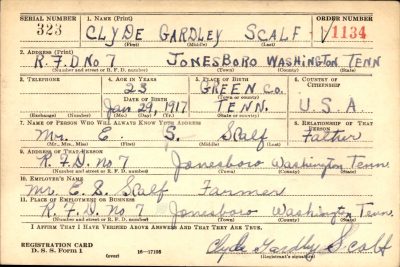 SERIAL NUMBER 1. NAME (Print) ORDER NUMBER
323 CLYDE GARDLEY SCALF V1134
(First) (Middle) (Last)
2. ADDRESS (Print)
R.F.D. No 7 JONESBORO WASHINGTON TENN
(Number and street or R. F. D. number) (Town) (County) (State)
3. TELEPHONE 4. AGE IN YEARS 5. PLACE OF BIRTH 6. COUNTRY OF CITIZENSHIP
23 GREEN Co.
DATE OF BIRTH (Town or county)
Jan 24, 1917 TENN. U.S.A
(Exchange) (Number) (Mo.) (Day) (Yr.) (State or country)
7. NAME OF PERSON WHO WILL ALWAYS KNOW YOUR ADDRESS 8. RELATIONSHIP OF THAT PERSON
Mr. E. S. Scalf Father
(Mr., Mrs., Miss) (First) (Middle) (Last)
9. ADDRESS OF THAT PERSON
R.F.D. No 7 Jonesboro Washington Tenn.
(Number and street or R. F. D. number) (Town) (County) (State)
10. EMPLOYER'S NAME
Mr. E. S. Scalf Farmer
11. PLACE OF EMPLOYMENT OR BUSINESS
R.F.D. No 7 Jonesboro Washington Tenn.
(Number and street or R. F. D. number) (Town) (County) (State)
I AFFIRM THAT I HAVE VERIFIED ABOVE ANSWERS AND THAT THEY ARE TRUE.
REGISTRATION CARD
D. S. S. Form 1 (over) 16—17105 Clyde Gardly Scalf
(Registrant's signature)